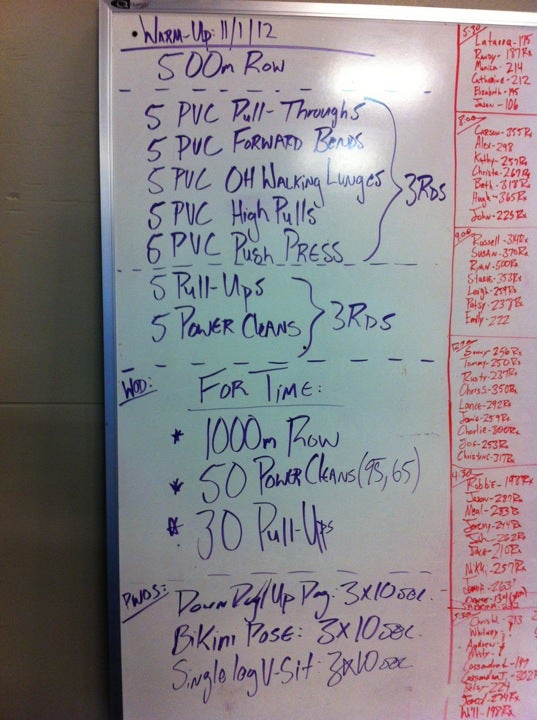 • WARM-UP: 11/1/12
500m ROW
5 PVC Pull-Throughs
5 PVC FORWARD BENDS
5 PVC OH WALKING LUNGES
5 PVC High Pulls
6 PVC PUSH PRESS
3RDS
5 Pull-Ups
5 POWER CLEANS
3RDS
WOD:
FOR TIME:
* 1000m ROW
* 50 POWER CLEANS (95, 65)
* 30 Pull-Ups
PWOS:
DOWN DOG/UP DOG: 3x10 sec.
BIKINI POSE: 3x10 sec.
Single leg V-Sit: 3x10 sec
5:30
Monica - 214
Catherine - 212
Elizabeth - 195
Jason - 106
8:00
Carson - 255Rx
Alex - 298
Kathy - 257Rx
Christa - 269Rx
Beth - 318Rx
Hugh - 365Rx
John - 225Rx
9:00
SUSAN - 370Rx
Ryan - 500Rx
Stacie - 353Rx
Leigh - 259Rx
Patsy - 237Rx
Emily - 222
Tommy - 250Rx
Rusty - 237Rx
Chris S - 350Rx
Lance - 292Rx
Jamie - 259Rx
Charlie - 300Rx
Joe - 253Rx
Christine - 317Rx
4:30
Robbie - 198Rx
Jason - 287Rx
Neal - 283Rx
Jeremy - 244Rx
Josh - 262Rx
Nikki - 257Rx
5:30
Christi - 313
Whitney
Andrew
Misty
Cassandra L - 197
Cassandra J. - 302
Betsy - 224
Jared - 274Rx
Will - 198Rx